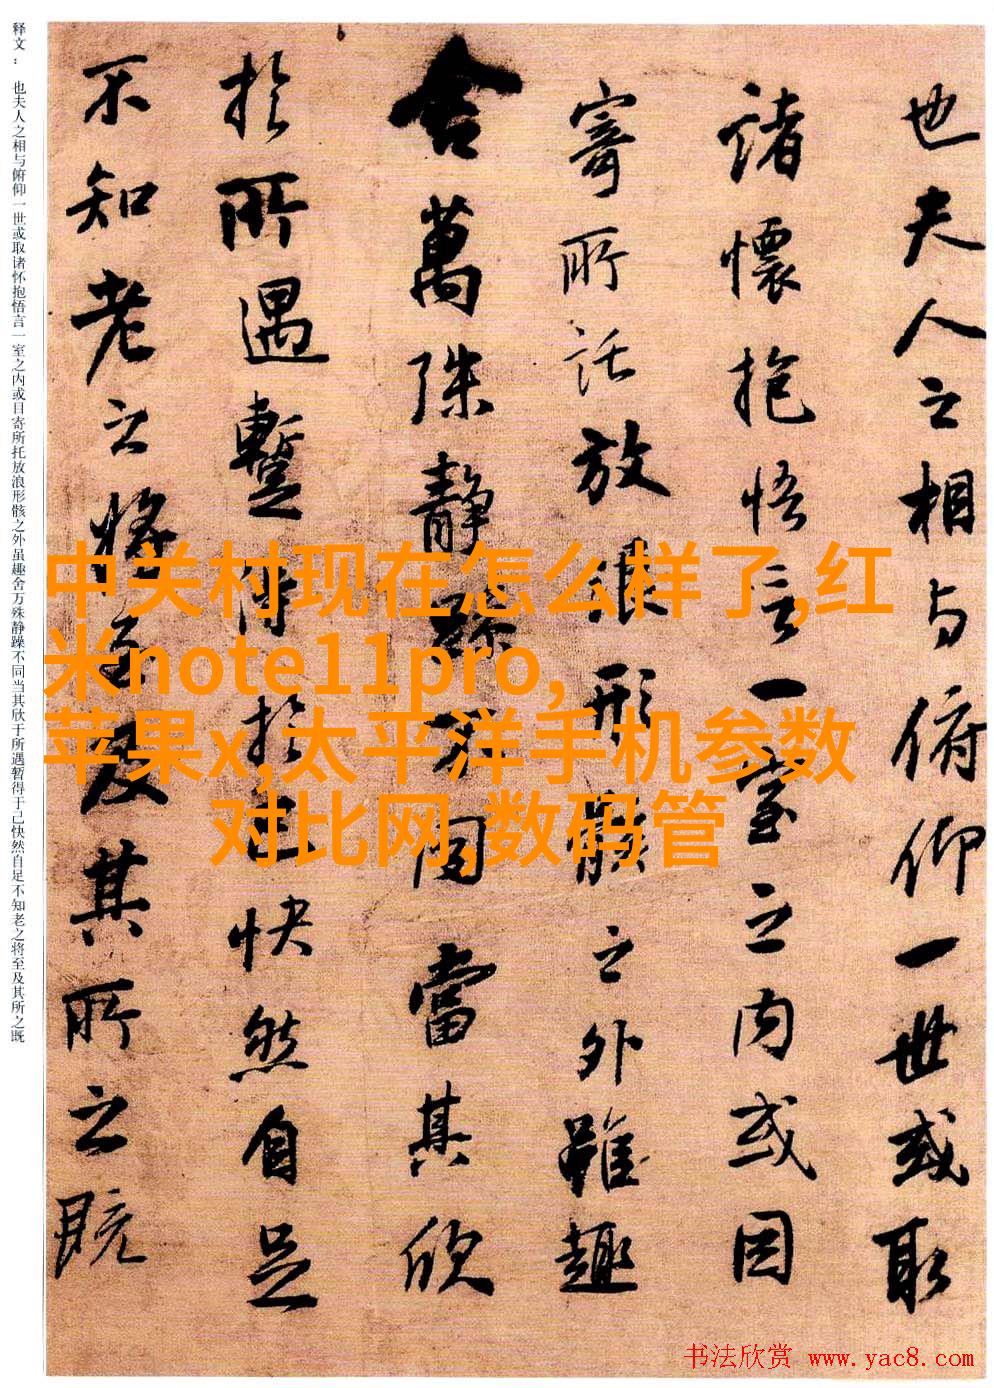 也夫人之相与俯仰一世或取
諸懷抱悟言一室之内或因
寄所託放浪形骸之外雖趣
舍萬殊静躁不同當其欣
於所遇蹔得於己快然自足
不知老之將至及其所之既
释文： 也夫人之相与俯仰一世或取诸怀抱悟言一室之内或目寄所托放浪形骸之外虽趣舍万殊静躁不同当其欣于所遇暂得于己快然自足不知老之将至及其所之既
中关村现在怎么样了,红
米note11pro,
苹果x,太平洋手机参数
对比网,数码管
书法欣赏 www.yac8.com